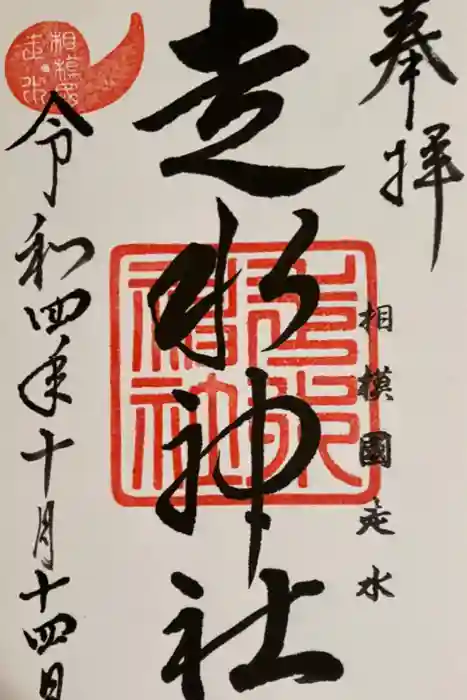 奉拝
相模國走水
走水神社
走水神社
令和四年十月十四日
相模國
走水